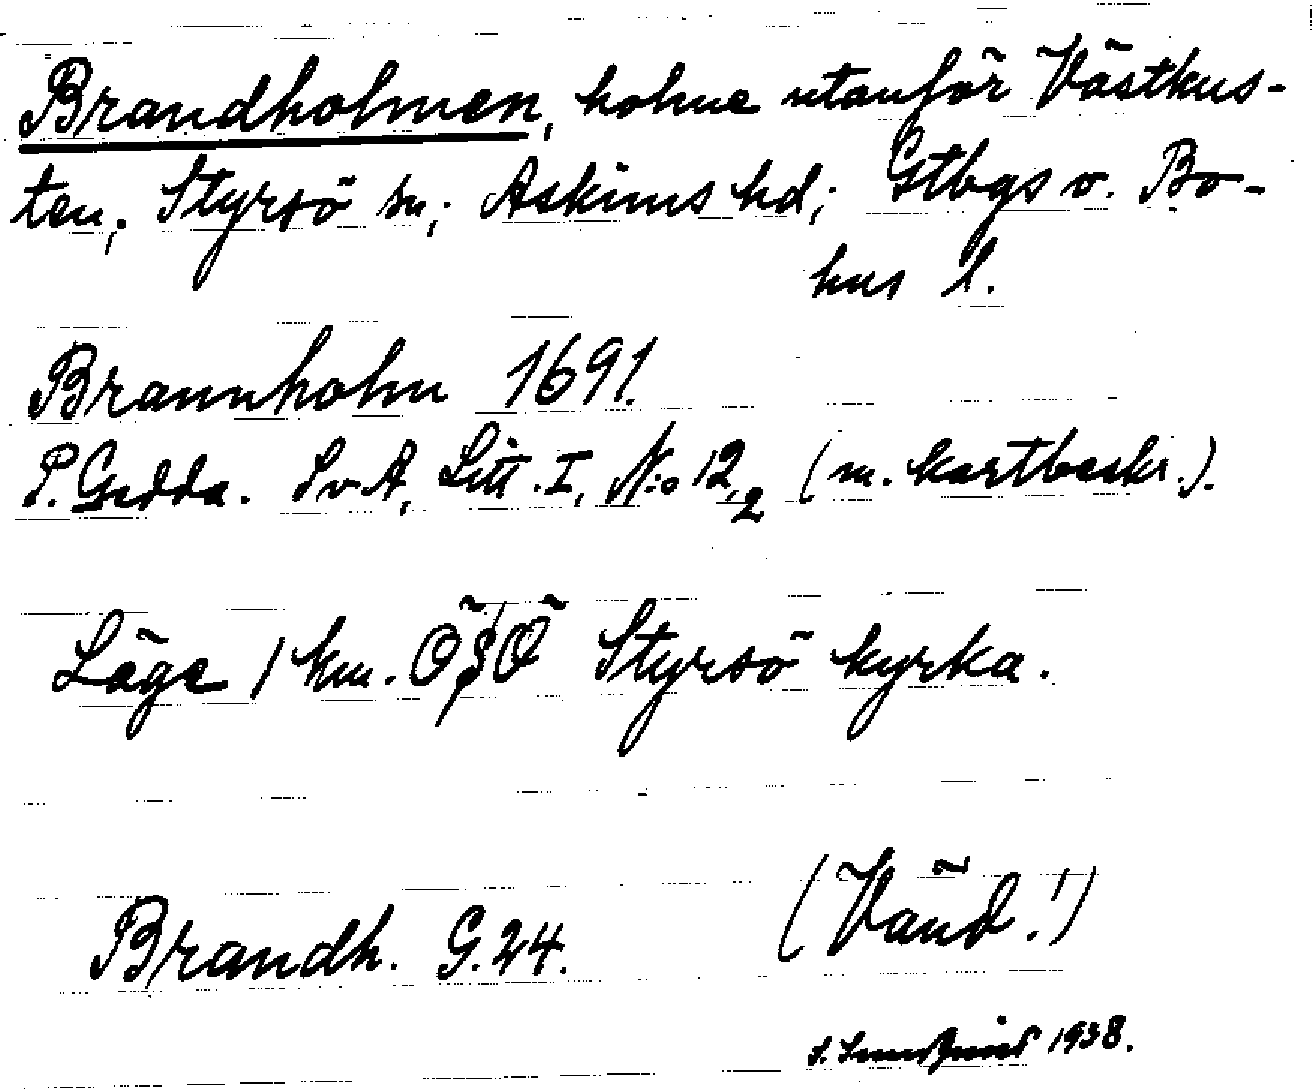 Brandholmen, holme utanför Västkus-
ten, Styrsö sn; Askims hd; Gtbgs o. Bo-
hus l.
Brannholm 1691.
P. Gedda. SvA, Litt. I, N:o 12,2 (m. kartbeskr.).
Läge 1 km. ÖSÖ Styrsö kyrka.
Brandh. G. 24. (Vänd!)
1938.